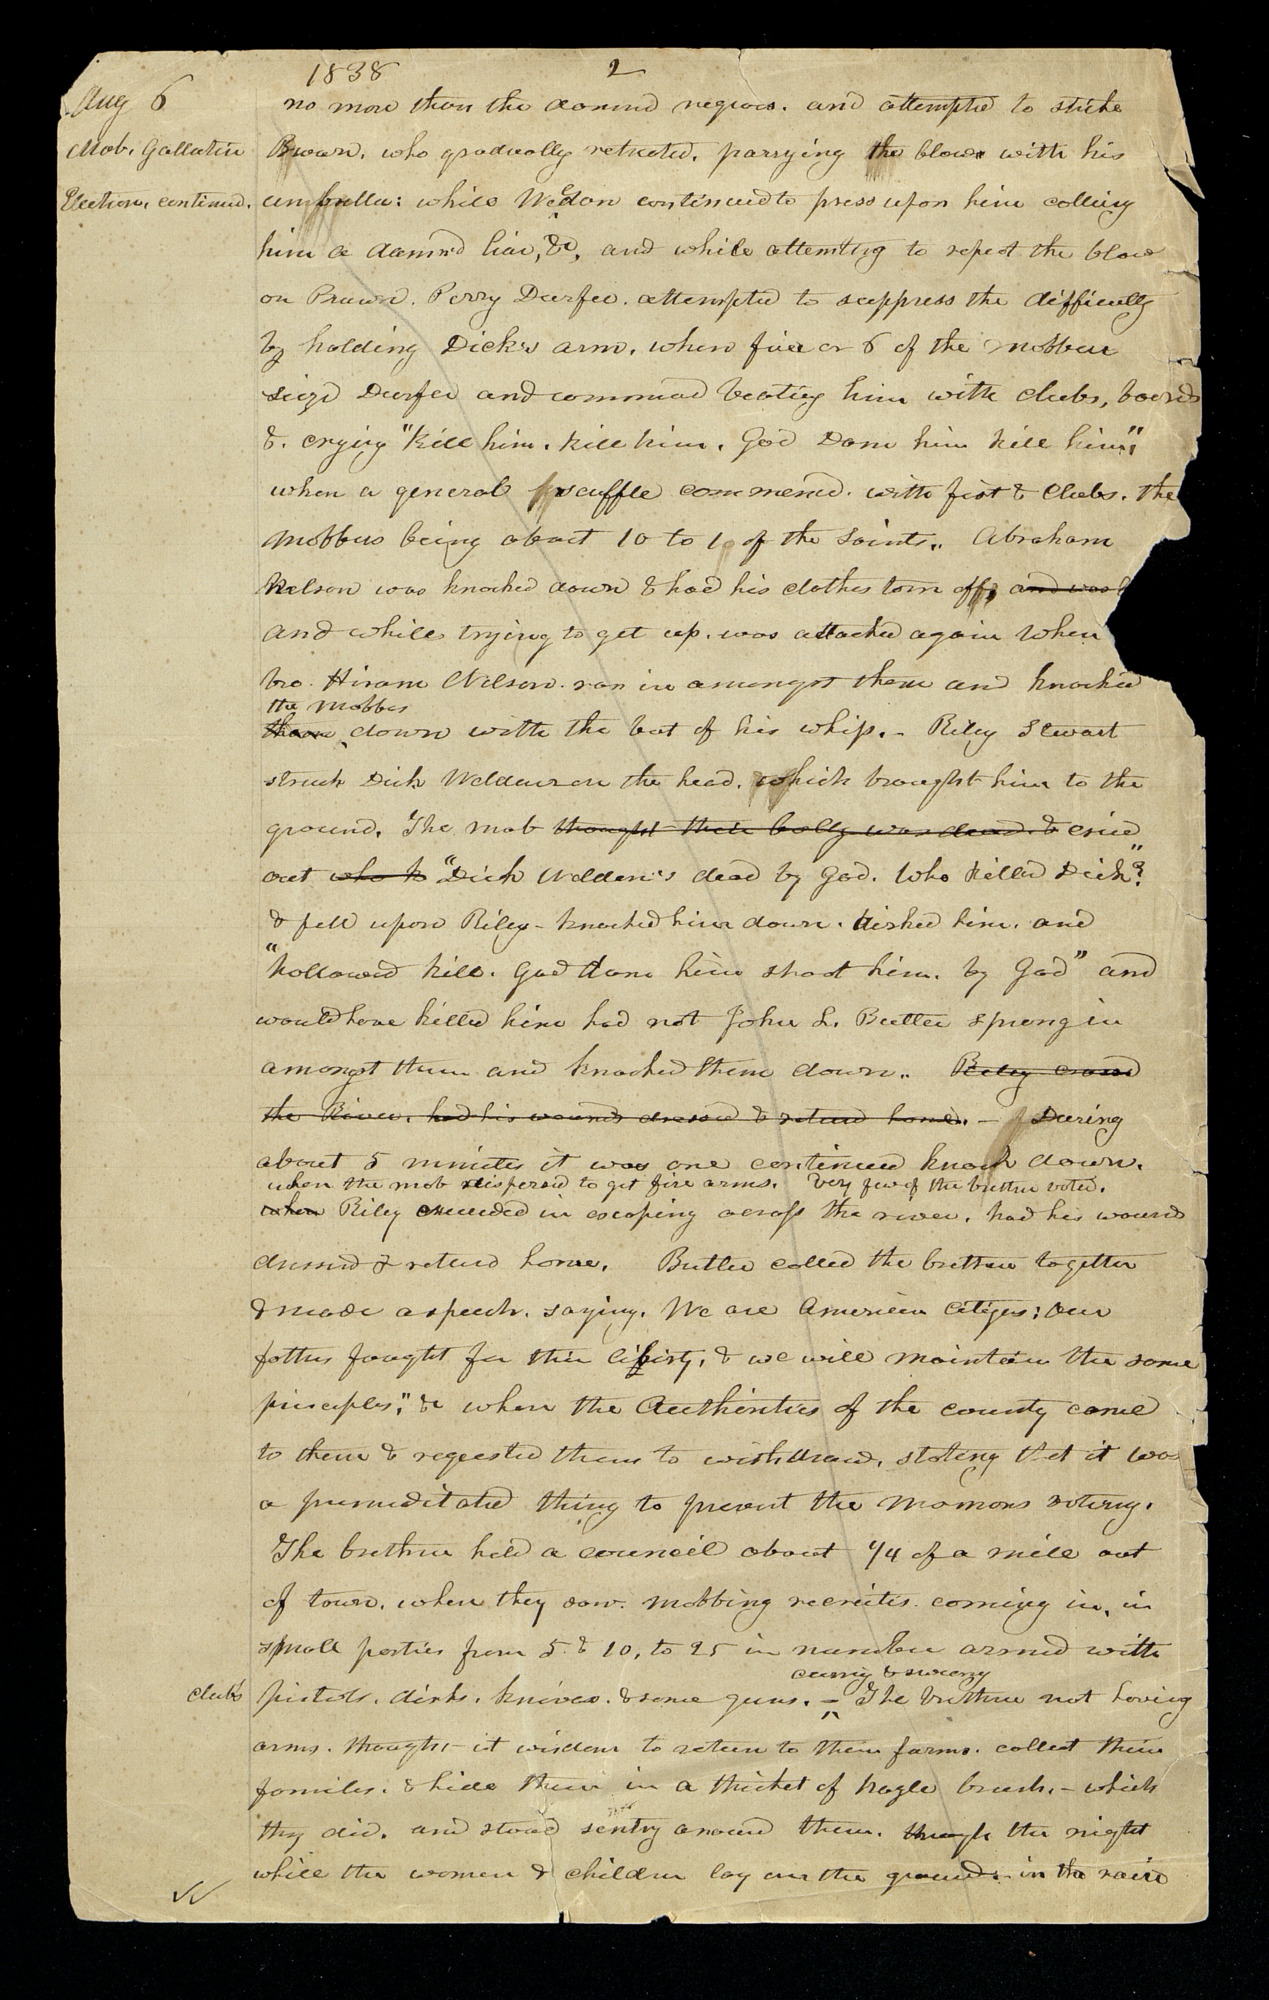 1838
2
Aug 6
no more than the damnd negroes. and attempted to strike
Mob, Gallatin
Brown, who gradually retreted, parrying the blows with his
Election, continued.
umbrella: while Weldon continued to press upon him calling
him a damn'd liar, &c, and while attemting to repeat the blow
on Brown. Perry Durfee. attempted to suppress the difficulty
by holding Dick's arm, when five or 6 of the mobbers
siezd Durfee and commenced beating him with clubs, boards
&. crying "kill him, kill him, God Dam him kill him",
when a general scuffle commenced. with fist & Clubs. the
mobbers being about 10 to 1 of the saints,. Abraham
Nelson was knocked down & had his clothes torn off, and was
and while trying to get up. was attacked again when
bro. Hiram Nelson. ran in amongst them and knocked
the mobbers
them down with the but of his whip. - Riley Stewart
struck Dick Weldon on the head. which brought him to the
ground. The mob thought their bully was dead. & cried
out who k "Dick Weldon's dead by God. Who killed Dick"?
& fell upon Riley - knocked him down. kicked him. and
"hollowed kill. God dam him shoot him. by God" and
would have killed him had not John L. Butler sprung in
amongst them and knocked them down,. Riley crossed
the River. had his wounds dressed & returd home. - During
about 5 minutes it was one continued knock down,
when the mob dispersed to get fire arms. Very few of the brethren voted.
when Riley succeeded in escaping across the river, had his wounds
dressed & returd home. Butler called the brethren together
& made a speech. saying, We are American citizens; our
fathers fought for their liberty, & we will maintain the same
principles," &c when the Authorities of the county came
to them & requested them to withdraw, stating that it was
a premeditated thing to prevent the mormons voting.
The brethren held a council about 1/4 of a mile out
of town, when they saw. mobbing recruits. coming in, in
small parties from 5 & 10, to 25 in number armed with
cursing & swearing
clubs
pistols. dirks. knives. & some guns. - The brethren not having
arms. thought it wisdom to return to their farms. collect their
families. & hide them in a thicket of hazle brush, - which
they did, and stood sentry around them. through the night
while the women & children lay on the ground. in the rain